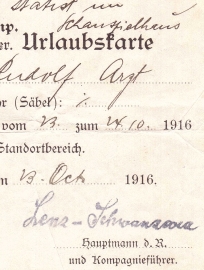 Statist im
Schauspielhaus
mp.
er. Urlaubskarte
Rudolf Arzt
or (Säbel): %
vom 23. zum 24.10. 1916
Standortbereich.
n 23. Okt 1916.
Lenz-
Hauptmann d. R.
und Kompagnieführer.